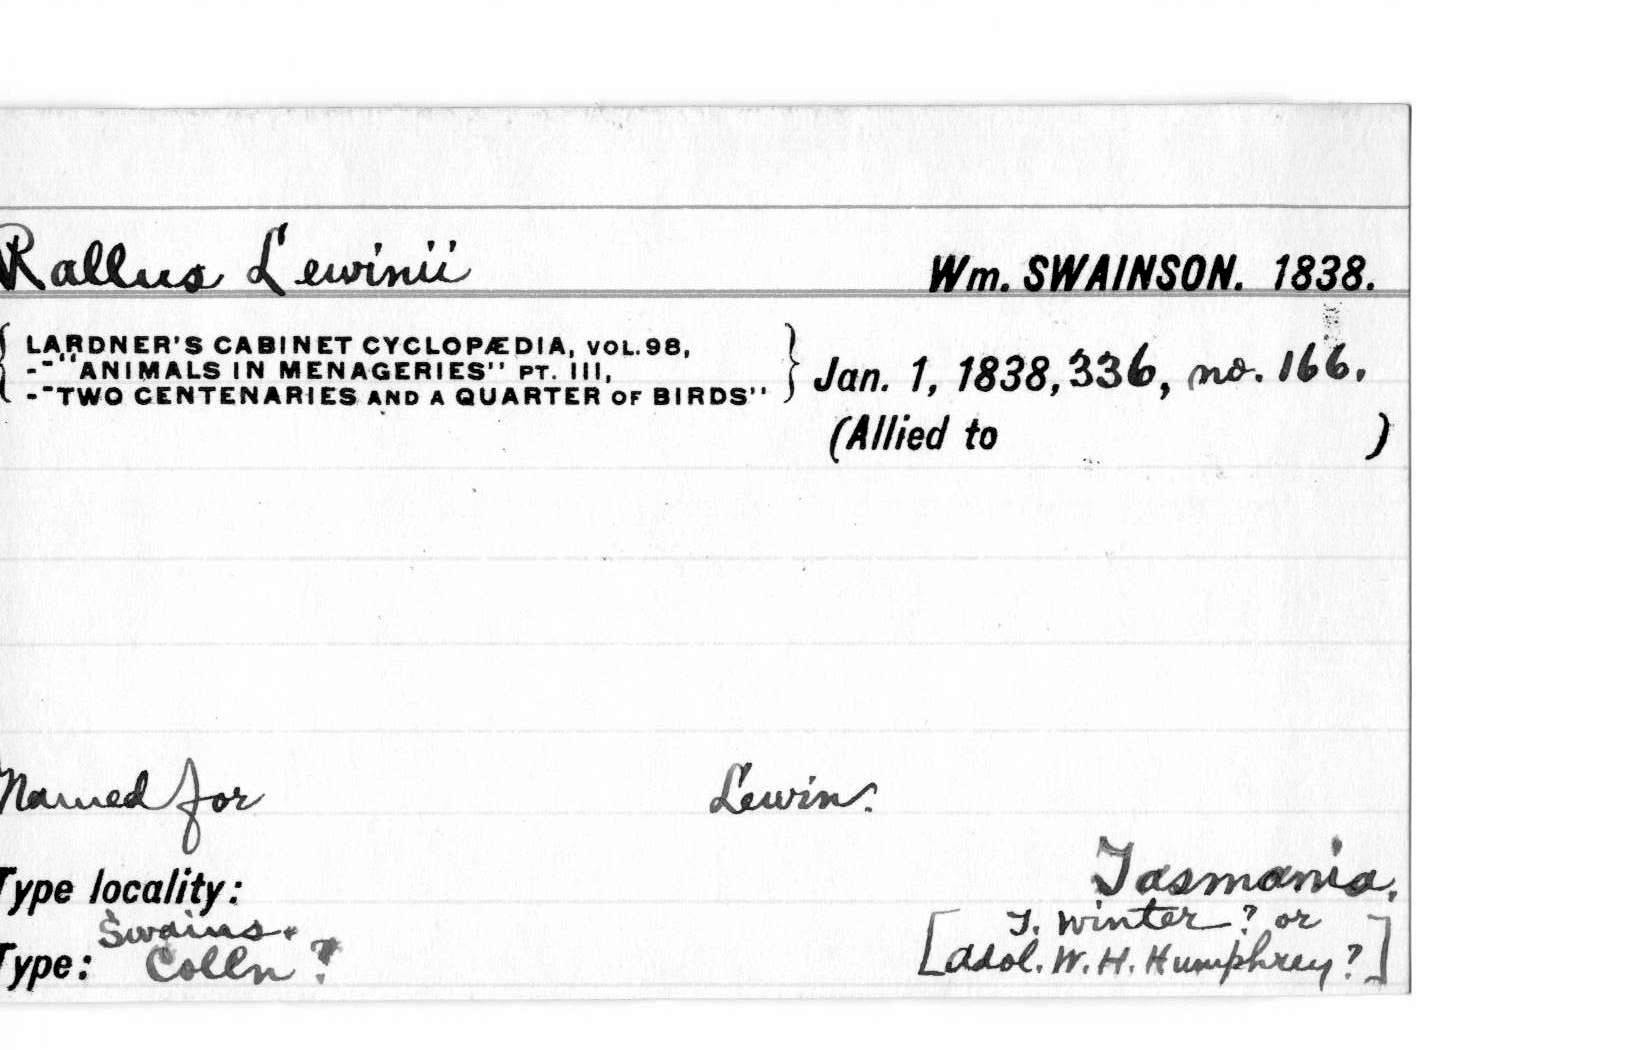 Rallus Lewinii Wm. SWAINSON. 1838.
LARDNER'S CABINET CYCLOPÆDIA, VOL. 98,
-"ANIMALS IN MENAGERIES" PT. III,
-"TWO CENTENARIES AND A QUARTER OF BIRDS"
Jan. 1, 1838, 336, no. 166.
(Allied to )
Named for Lewin.
Type locality: Tasmania.
Swains. [J. Winter? or
Type: Colln? Adol. W. H. Humphrey?]